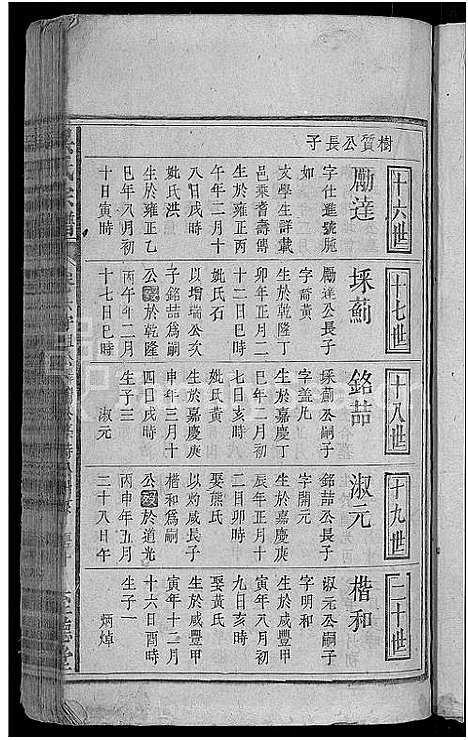 樹質公長子
十六世
勵達
字仕進號旎
如
文學生詳載
邑乘耆壽傳
生於雍正丙
午年二月十
八日戌時
妣氏洪
生於雍正乙
巳年八月初
十日寅時
十七世
埰薊
勵達公長子
字裔黃
生於乾隆丁
卯年正月二
十二日巳時
妣氏石
以增瑞公次
子銘喆爲嗣
公歿於乾隆
丙午年二月
十七日巳時
十八世
銘喆
埰薊公嗣子
字蓋九
生於嘉慶丁
巳年二月初
七日亥時
妣氏黃
生於嘉慶庚
申年三月十
四日戌時
生子三
淑元
十九世
淑元
銘喆公長子
字開元
生於嘉慶庚
辰年正月十
二日卯時
娶熊氏
以灼咸長子
楷和爲嗣
公歿於道光
丙申年五月
二十八日午
二十世
楷和
淑元公嗣子
字明和
生於咸豐甲
寅年八月初
九日亥時
娶黃氏
生於咸豐甲
寅年十二月
十六日酉時
生子一
炳焯
氏宗譜
德堂